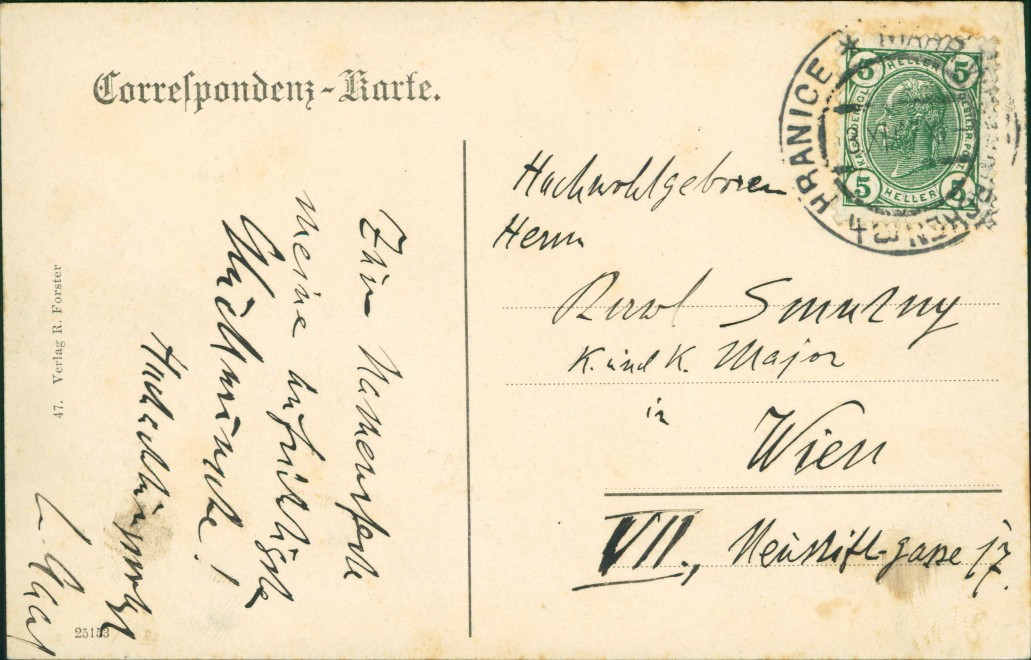 Correspondenz-Karte.
Zum Namensfeste
meine aufrichtigste
Glückwünsche!
Hochachtungsvoll
47. Verlag R. Forster
25153
HRANICE
5 HELLER 5
5 HELLER 5
Hochwohlgeboren
Herrn
Smutny
K. und K. Major
in
Wien
VII., Neustift-gasse 17.